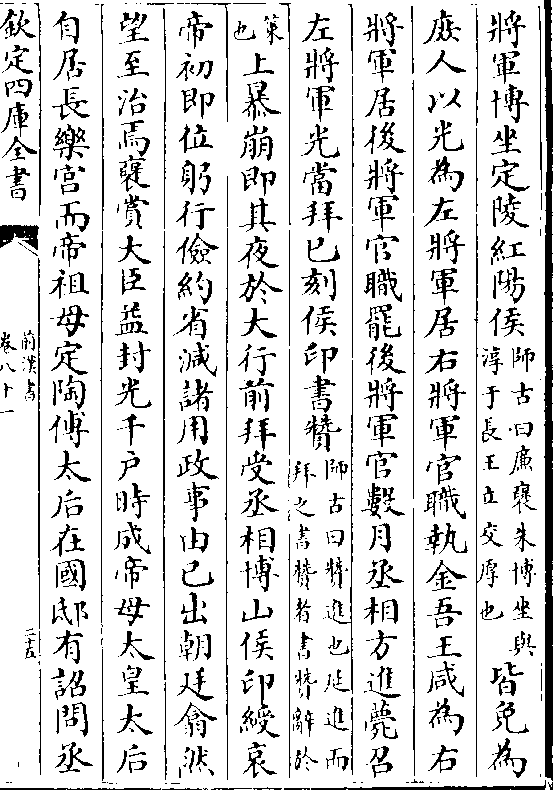 將軍博坐定陵紅陽侯師古曰廉襃朱博坐與淳于長王立交厚也皆免為
庶人以光為左將軍居右將軍官職執金吾王咸為右
將軍居後將軍官職罷後將軍官數月丞相方進薨召
左將軍光當拜已刻侯印書贊師古曰贊進也延進而拜之書贊者書贊辭於
策也上暴崩即其夜於大行前拜受丞相博山侯印綬哀
帝初即位躬行儉約省減諸用政事由己出朝廷翕然
望至治焉襃賞大臣益封光千戶時成帝母太皇太后
自居長樂宮而帝祖母定陶傅太后在國邸有詔問丞
欽定四庫全書
前漢書
卷八十一
二十五